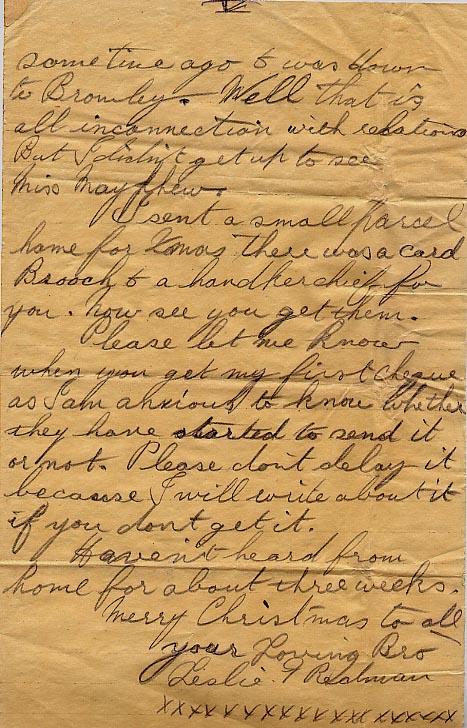 IV
some time ago & was down
to Bromley. Well that is
all inconnection with relations
But I didn't get up to see
Miss Mayhew.
I sent a small parcel
home for Xmas There was a card
Brooch & a handkerchief for
you. Now see you get them.
Please let me know
when you get my first cheque
as I am anxious to know whether
they have started to send it
or not. Please dont delay it
because I will write about it
if you dont get it.
Haven't heard from
home for about three weeks.
Merry Christmas to all
your Loving Bro
Leslie. F Redman
xxxxxxxxxxxxxxxxxxx